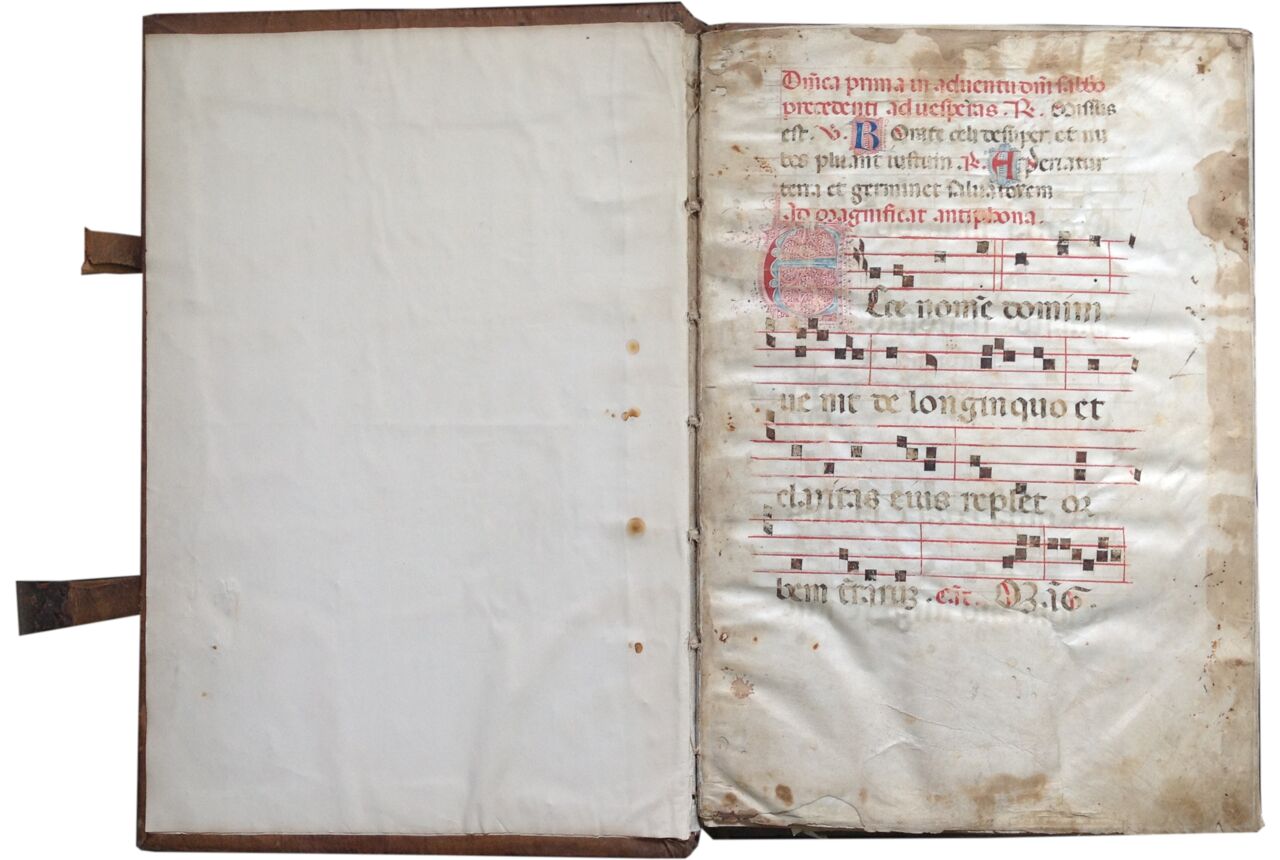 Dn̄ica prima in aduentu dn̄i sabbo
precedenti ad uesperas. R. Missus
est. V. Rorate celi desuper et nu
bes pluant iustum. R. Aperiatur
terra et germinet saluatorem
Ad magnificat antiphona.
Ecce nom̄e domini
uenit de longinquo et
claritas eius replet or
bem